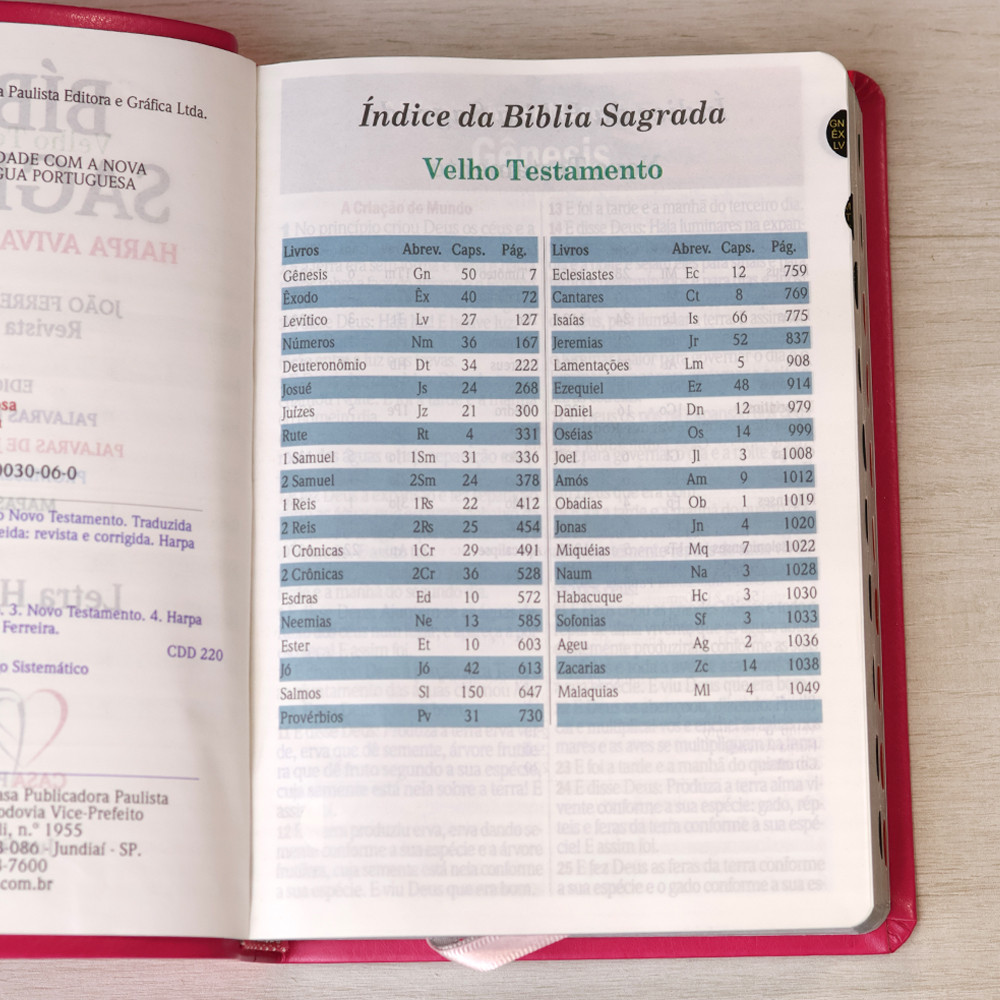 a Paulista Editora e Gráfica Ltda.
DADE COM A NOVA
GUA PORTUGUESA
0030-06-0
o Novo Testamento. Traduzida
eida: revista e corrigida. Harpa
. 3. Novo Testamento. 4. Harpa
Ferreira.
CDD 220
o Sistemático
asa Publicadora Paulista
odovia Vice-Prefeito
li, n.° 1955
-086 - Jundiaí - SP.
-7600
.com.br
Índice da Bíblia Sagrada
Velho Testamento
Livros Abrev. Caps. Pág.
Gênesis Gn 50 7
Êxodo Êx 40 72
Levítico Lv 27 127
Números Nm 36 167
Deuteronômio Dt 34 222
Josué Js 24 268
Juízes Jz 21 300
Rute Rt 4 331
1 Samuel 1Sm 31 336
2 Samuel 2Sm 24 378
1 Reis 1Rs 22 412
2 Reis 2Rs 25 454
1 Crônicas 1Cr 29 491
2 Crônicas 2Cr 36 528
Esdras Ed 10 572
Neemias Ne 13 585
Ester Et 10 603
Jó Jó 42 613
Salmos Sl 150 647
Provérbios Pv 31 730
Livros Abrev. Caps. Pág.
Eclesiastes Ec 12 759
Cantares Ct 8 769
Isaías Is 66 775
Jeremias Jr 52 837
Lamentações Lm 5 908
Ezequiel Ez 48 914
Daniel Dn 12 979
Oséias Os 14 999
Joel Jl 3 1008
Amós Am 9 1012
Obadias Ob 1 1019
Jonas Jn 4 1020
Miquéias Mq 7 1022
Naum Na 3 1028
Habacuque Hc 3 1030
Sofonias Sf 3 1033
Ageu Ag 2 1036
Zacarias Zc 14 1038
Malaquias Ml 4 1049
GN
ÊX
LV